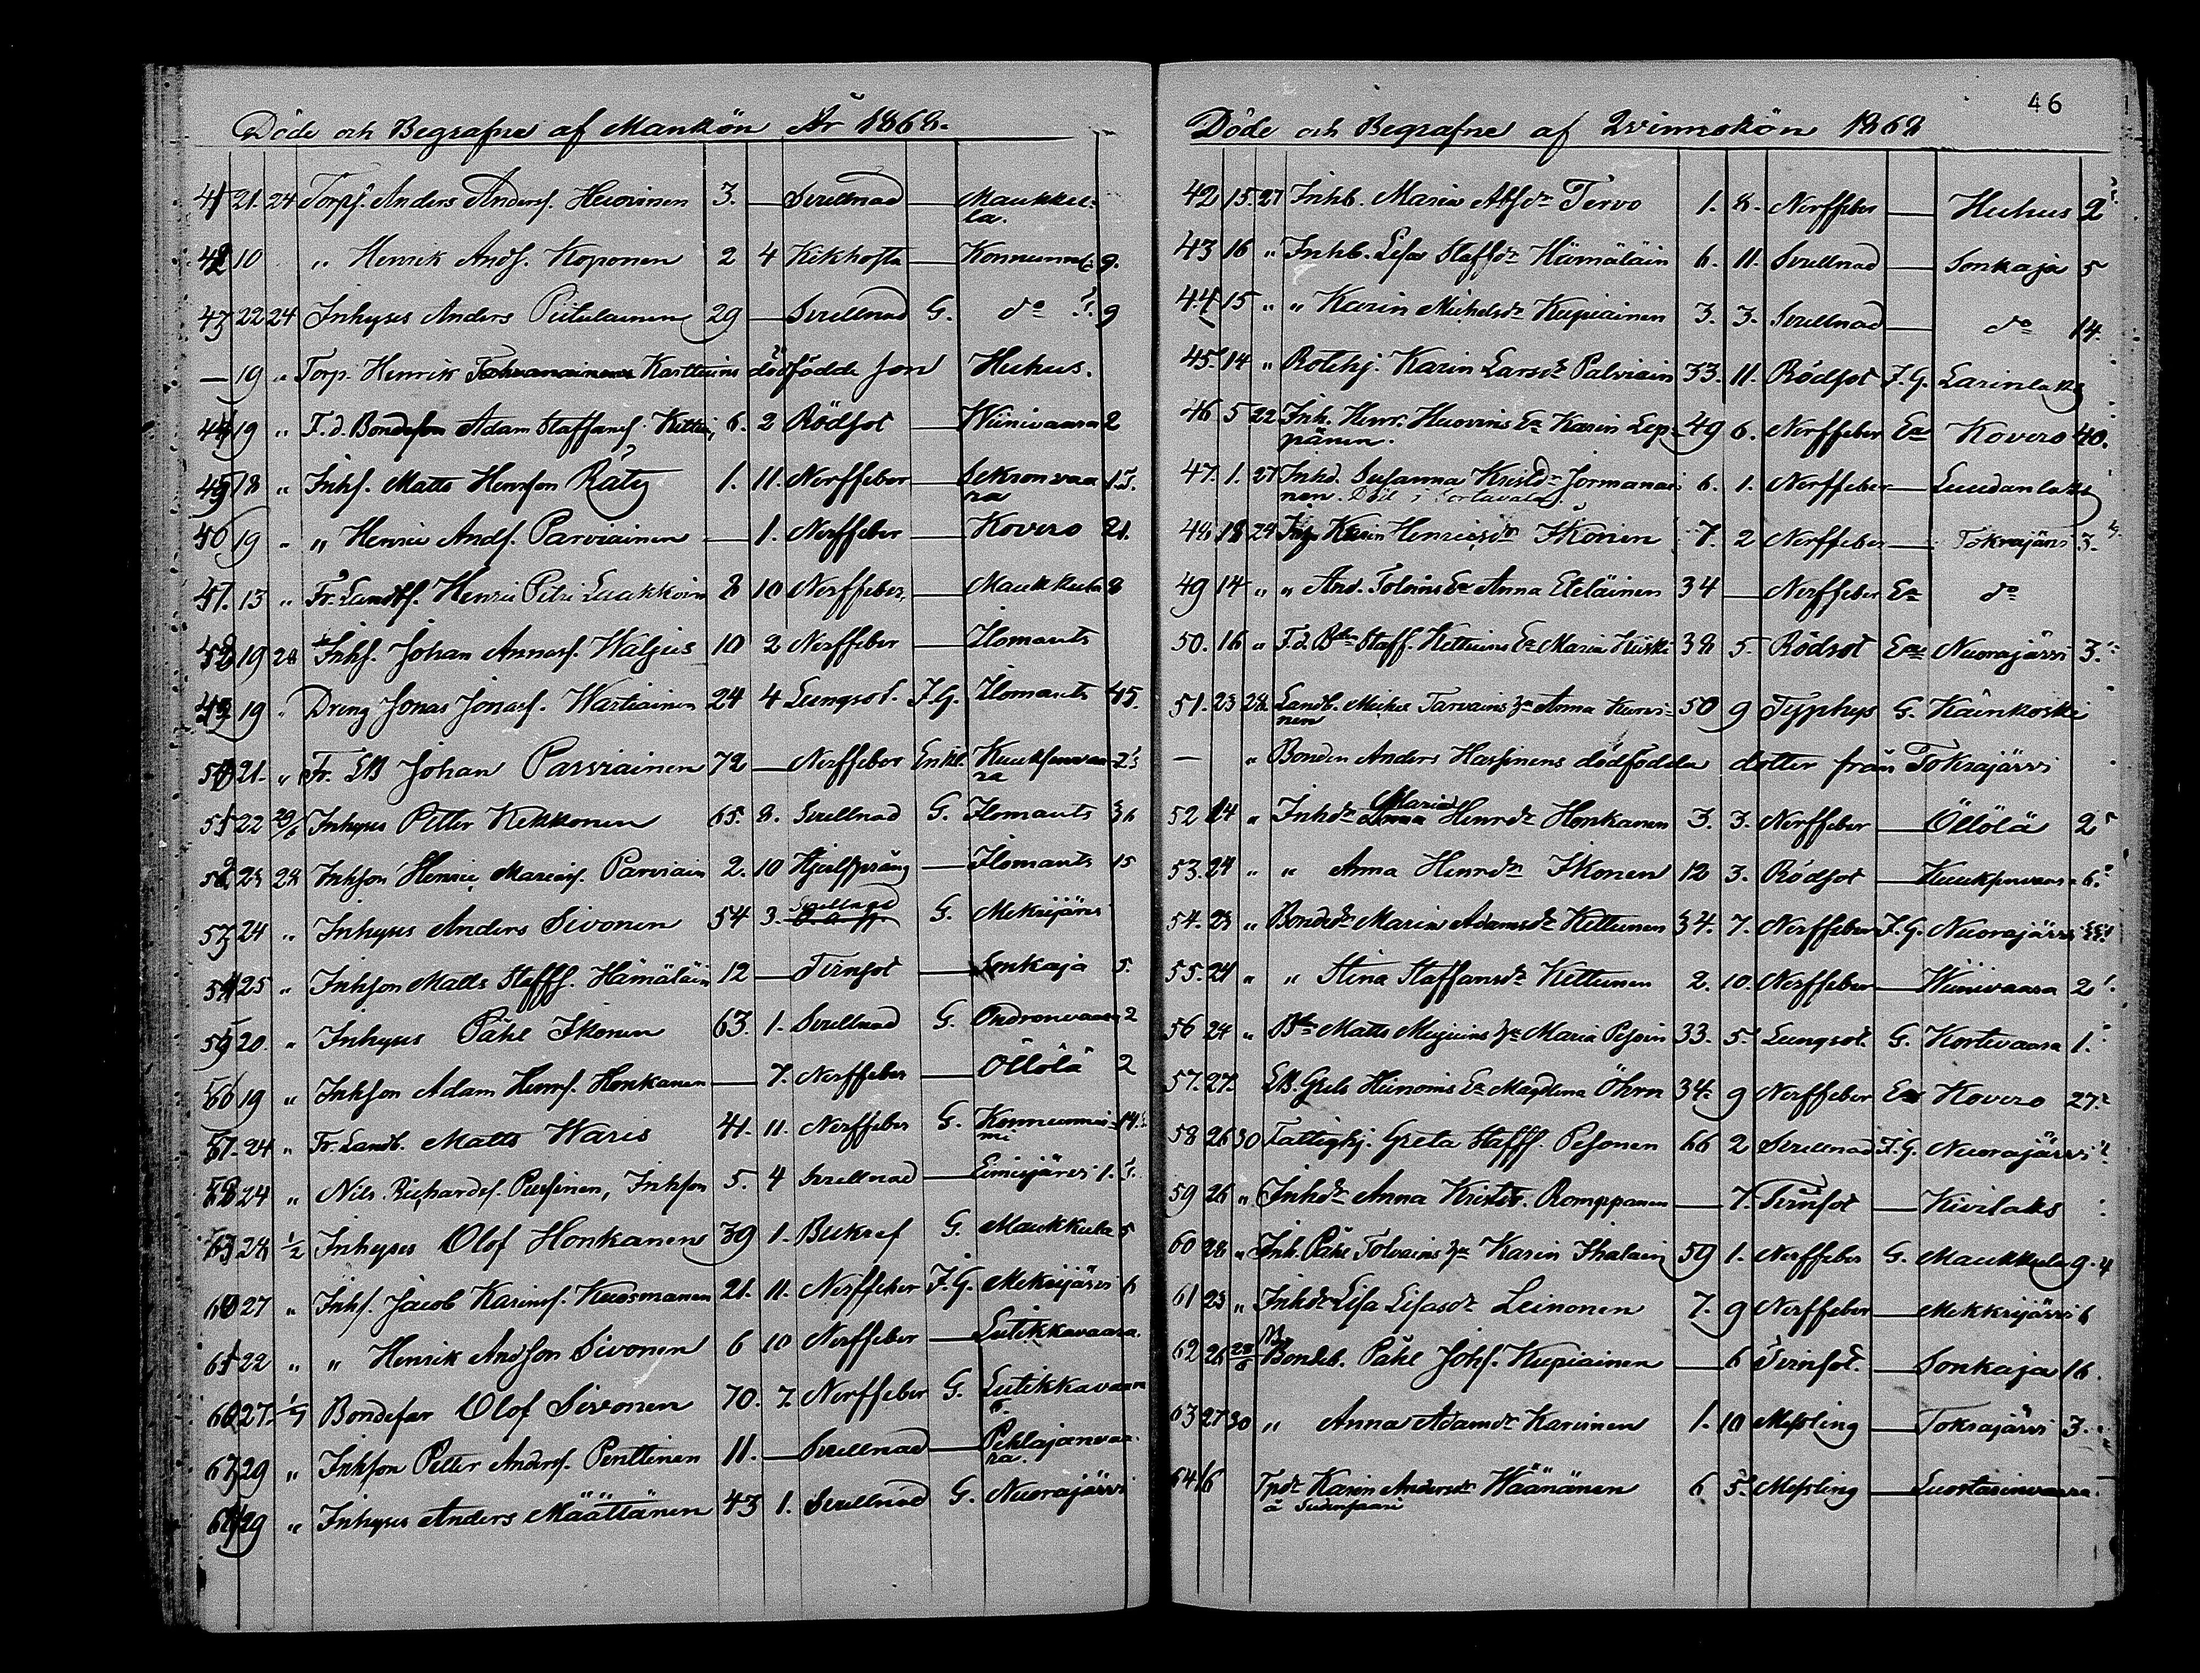 46
Döde och Begrafne af Mankön År 1868.
41 21. 24 Torpf. Anders Andersf. Huovinen 3. — Svullnad — Maukku-
la.
42 10 " Henrik Andf. Koponen 2 4 Kikhosta — Konnunni 9.
43 22 24 Inhyses Anders Piitulainen 29 — Svullnad G. do 9
— 19 " Torp. Henrik Karttuins dödfödde son Huhus.
44 19 " F. d. Bondeson Adam Staffansf. Kettui, 6. 2 Rödsot — Wiinivaara 2
45 18 " Inhf. Matts Henrsson Räty 1. 11. Nerffeber — Sikronvaa
ra
46 19 " " Henric Andf. Parviainen — 1. Nerffeber — Kovero 21.
47. 13 " Fr. Landbf. Henric Petri Luukkoin 8 10 Nerffeber, — Maukkula 8
48 19 28 Inhf. Johan Annasf. Waljus 10 2 Nerffeber — Ilomants
49 19 " Dreng Jonas Jonasf. Wartiainen 24 4 Lungsot. J. G. Ilomants 45.
50 21. " Fr. LB Johan Parviainen 72 — Nerffeber Enkl. Kuuksenvaa
ra
51 22 Inhyses Petter Kekkonen 65. 8. Svullnad G. Ilomants 36
52 23 28 Inhson Henric Mariasf. Parviain 2. 10 Hjelfpräng — Ilomants 15
53 24 " Inhyses Anders Sivonen 54 3. Svullnad G. Mekrijärvi
54 25 " Inhson Matts Staffsf. Hämäläin 12 — Tvinsot — Sonkaja 5.
55 20. " Inhyses Påhl Ikonen 63. 1. Svullnad G. Ondronvaara 2
56 19 " Inhson Adam Henrsf. Honkanen — 7. Nerffeber — Öllölä 2
57. 24 " Fr. Landb. Matts Waris 41. 11. Nerffeber G. Konnunni-
mi
58 24 " Nils Richardsf. Pussinen, Inhson 5. 4 Svullnad — Eimisjärvi 1.
28 1/2 Inhyses Olof Honkanen 39 1. Blekref G. Maukkula 5
60 27 " Inhf. Jacob Karinsf. Kuosmanen 21. 11. Nerffeber J. G. Mekrijärvi 6
61 22 " " Henrik Andsson Sivonen 6 10 Nerffeber — Lutikkavaara.
62 27. Bondefar Olof Sivonen 70. 7. Nerffeber G. Lutikkavaara
63 29 " Inhson Petter Andersf. Penttinen 11. — Svullnad — Pehlajanvaa-
ra.
64 29 " Inhyses Anders Määttänen 43 1. Svullnad G. Nuorajärvi
Döde och Begrafne af Qvinnokön 1868
42 15. 27 Inhb. Maria Abfdr Tervo 1. 8. Nerffeber — Huhus 2
43 16 " Inhb. Lisa Staffdr Hämäläin 6. 11. Svullnad — Sonkaja 5
44 15 " " Karin Michelsdr Kupiainen 3. 3. Svullnad — do 14.
45. 14 " Rotehj. Karin Larsdr Palviain 33. 11. Rödsot J. G. Larinlaks
46 5 22 Inh. Henr. Huovins Ea Karin Lep- 49 6. Nerffeber Ea Kovero 40.
pänen.
47. 1. 27 Inhd. Susanna Kristdr Jormanai 6. 1. Nerffeber — Luudanlaks
nen. Död i Sortavala
48 18 24 Inh Karin Henricsdr Ikonen 7. 2 Nerffeber — Tokrajärvi 3.
49 14 " " And. Tolvains Ea Anna Eteläinen 34 — Nerffeber Ea do
50. 16 " F. d. Bdes Staff. Kettuins Ea Maria Kiiski 38 5. Rödsot Ea Nuorajärvi 3.
51. 23 28. Landb. Michel Tarvains Ha Anna Kurvi- 50 9 Typhus G. Käinkoski
nen
— " Bonden Anders Hassinens dödfödda dotter från Tokrajärvi
52 14 " Inhdr Maria Henrdr Honkanen 3. 3. Nerffeber — Öllölä 2
53. 24 " " Anna Henrdr Ikonen 12 3. Rödsot — Kuuksenvaara 6.
54. 23 " Bondedr Maria Adamsdr Kettunen 34. 7. Nerffeber J. G. Nuorajärvi
55. 24 " " Stina Staffansdr Kettunen 2. 10. Nerffeber — Wiinivaara 2
56 24 " Bdn Matts Mujuins Ha Maria Pesoin 33. 5. Lungsot. G. Kortevaara 1.
57. 27. LB. Grels Huinoins Ea Magdlena Öhrn 34. 9 Nerffeber Ea Kovero 27.
58 26 30 Fattighj. Greta Staffs. Pesonen 66 2 Svullnad J. G. Nuorajärvi
59 26 " Inhdr Anna Kristdr. Romppanen — 7. Tvinsot — Kivilaks
60 28 " Inh. Påhl Tolvains Ha Karin Ihalain 59 1. Nerffeber G. Maukkula 9.
61 23 " Inhdr Lisa Lisasdr Leinonen 7. 9 Nerffeber — Mekkrijärvi 6
62 26 Bondeb. Påhl Johsf. Kupiainen — 6 Tvinsot. — Sonkaja 16.
63 27 30 " Anna Adamsdr Karinen 1. 10 Messling — Tokrajärvi 3.
64 16 Tpdr Karin Andersdr Wäänänen 6 5. Messling — Luostarinvaara.
à Sudensaari